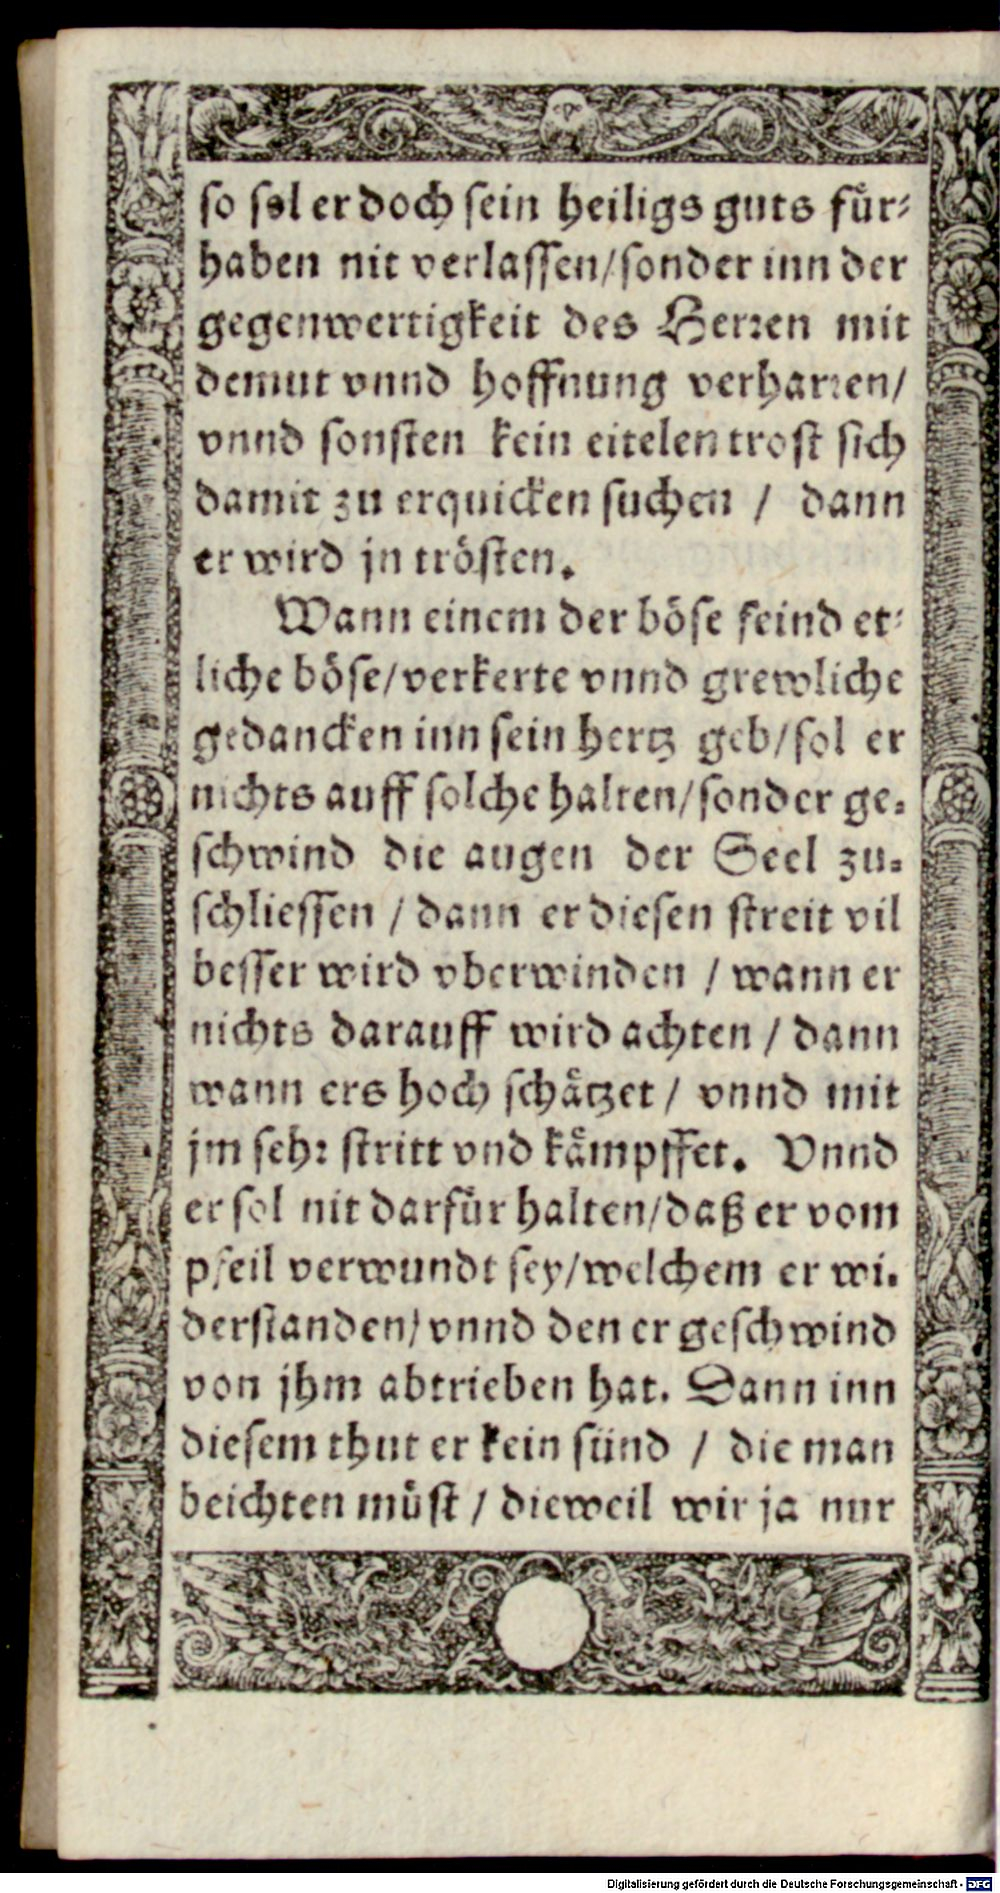 so sol er doch sein heiligs guts für-
haben nit verlassen/sonder inn der
gegenwertigkeit des Herren mit
demut vnnd hoffnung verharren/
vnnd sonsten kein eitelen trost sich
damit zu erquicken suchen / dann
er wird jn trösten.
Wann einem der böse feind et-
liche böse/verkerte vnnd grewliche
gedancken inn sein hertz geb/sol er
nichts auff solche halten/sonder ge-
schwind die augen der Seel zu-
schliessen / dann er diesen streit vil
besser wird vberwinden / wann er
nichts darauff wird achten / dann
wann ers hoch schätzet / vnnd mit
jm sehr stritt vnd kämpffet. Vnnd
er sol nit darfür halten/daß er vom
pfeil verwundt sey/welchem er wi-
derstanden/vnnd den er geschwind
von jhm abtrieben hat. Dann inn
diesem thut er kein sünd / die man
beichten müst / dieweil wir ja nur
Digitalisierung gefördert durch die Deutsche Forschungsgemeinschaft - DFG